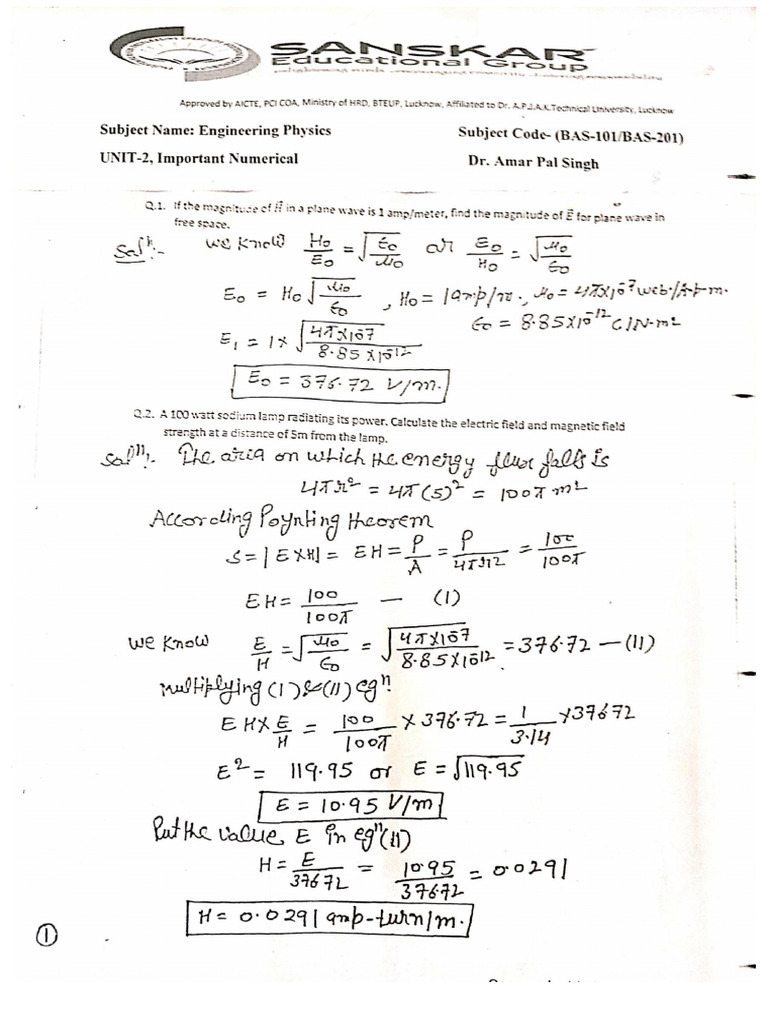 SANSKAR
Educational Group
Approved by AICTE, PCI COA, Ministry of HRD, BTEUP, Lucknow, Affiliated to Dr. A.P.J.A.K.Technical University, Lucknow
Subject Name: Engineering Physics Subject Code- (BAS-101/BAS-201)
UNIT-2, Important Numerical Dr. Amar Pal Singh
Q.1. If the magnitude of H⃗ in a plane wave is 1 amp/meter, find the magnitude of E⃗ for plane wave in
free space.
Solⁿ:- We know H₀/E₀ = √(ε₀/μ₀) or E₀/H₀ = √(μ₀/ε₀)
E₀ = H₀ √(μ₀/ε₀), H₀ = 1amp/m., μ₀ = 4π×10⁻⁷ web./Ap-m.
ε₀ = 8.85×10⁻¹² C/N-m²
E₁ = 1× √(4π×10⁻⁷/8.85×10⁻¹²)
E₀ = 376.72 V/m.
Q.2. A 100 watt sodium lamp radiating its power. Calculate the electric field and magnetic field
strength at a distance of 5m from the lamp.
Solⁿ:. The aria on which the energy flux falls is
4πr² = 4π(5)² = 100π m²
According Poynting theorem
S = |E×H| = EH = P/A = P/4πr² = 100/100π
EH = 100/100π — (I)
we know E/H = √(μ₀/ε₀) = √(4π×10⁻⁷/8.85×10⁻¹²) = 376.72 — (II)
multiplying (I) & (II) eqⁿ.
EH× E/H = 100/100π × 376.72 = 1/3.14 × 376.72
E² = 119.95 or E = √119.95
E = 10.95 V/m
Put the value E in eqⁿ(II)
H = E/376.72 = 10.95/376.72 = 0.0291
H = 0.0291 amp-turn/m.
①